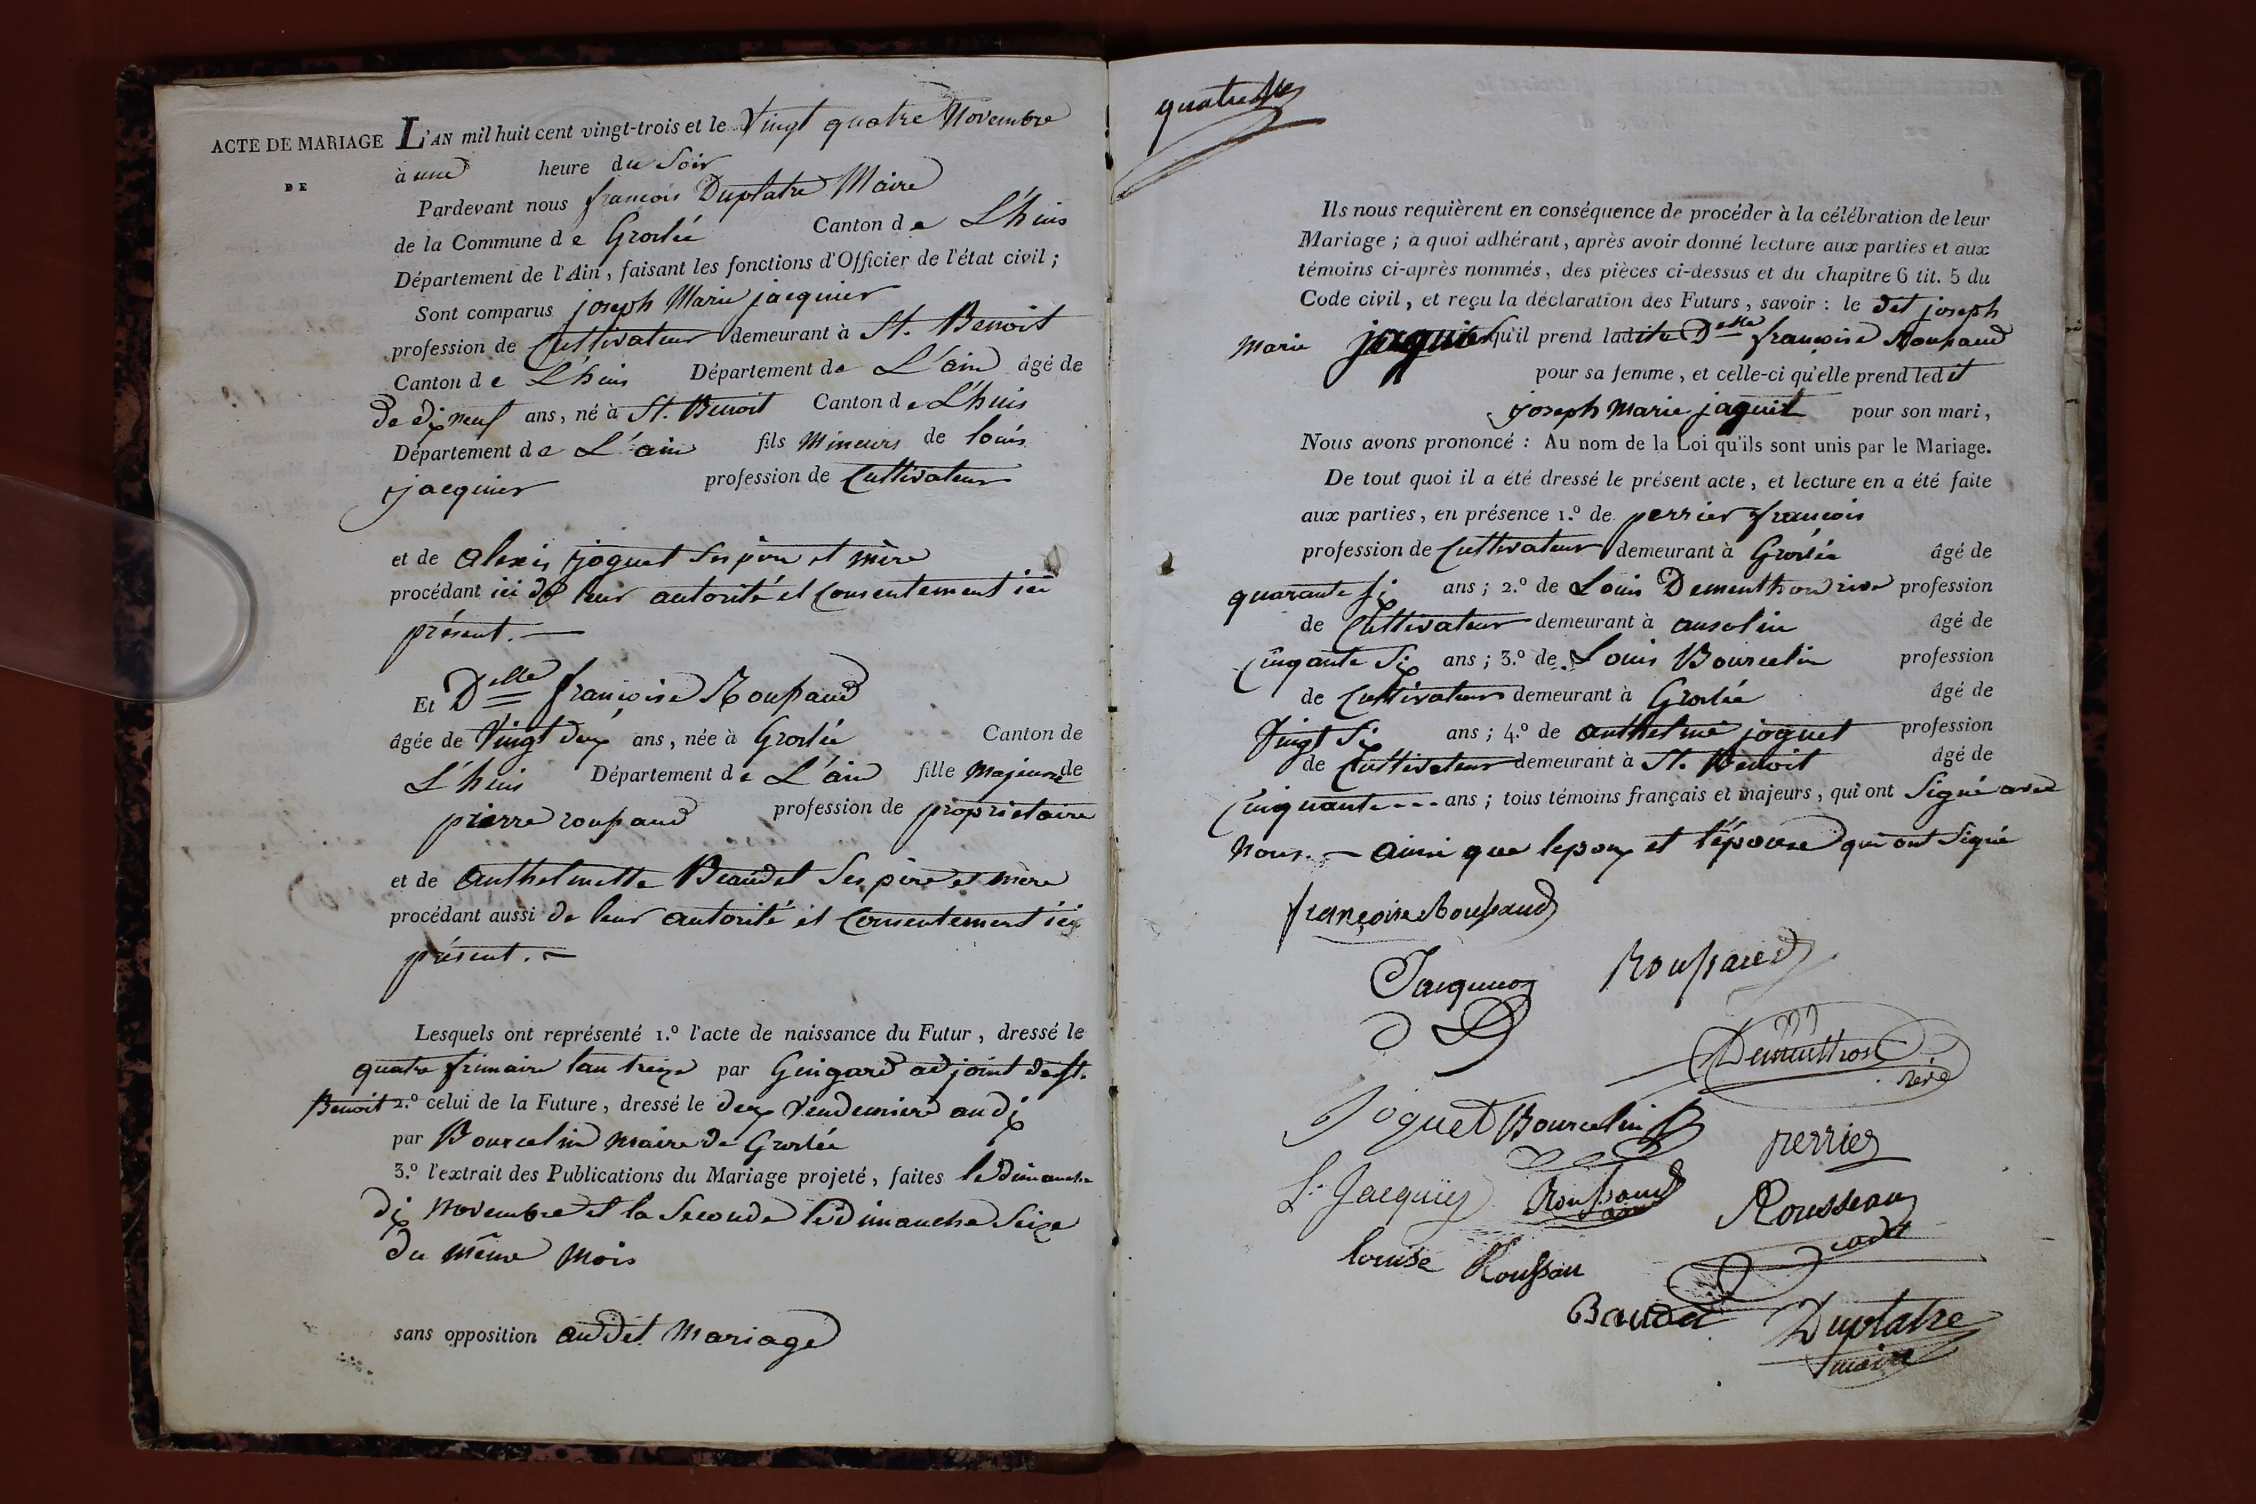 ACTE DE MARIAGE
DE
L'AN mil huit cent vingt-trois et le Vingt quatre Novembre
à une heure du Soir
Pardevant nous francois Duplatre Maire
de la Commune de Groslée Canton de L'huis
Département de l'Ain, faisant les fonctions d'Officier de l'état civil;
Sont comparus joseph Marie jacquier
profession de Cultivateur demeurant à St. Benoit
Canton de Lhuis Département de L'ain âgé de
de dix neuf ans, né à St. Benoit Canton de L'huis
Département de L'ain fils Mineurs de louis
jacquier profession de Cultivateur
et de alexis joguet Ses père et mère
procédant ici de leur autorité et Consentement ici
présent. —
Et Delle françoise Roussaud
âgée de Vingt deux ans, née à Groslée Canton de
L'huis Département de L'ain fille Majeure de
pierre roussaud profession de proprietaire
et de anthelmette Beaudet Ses père et mère
procédant aussi de leur autorité et Consentement ici
présent. —
Lesquels ont représenté 1.º l'acte de naissance du Futur, dressé le
quatre frimaire lan treize par Guigard adjoint de St.
Benoit 2.º celui de la Future, dressé le dex Vendemiere an dix
par Bourcelin maire de Groslée
3.º l'extrait des Publications du Mariage projeté, faites le dimanche
dix Novembre et la Seconde le dimanche Seize
du même Mois
sans opposition audit Mariage
quatre
Ils nous requièrent en conséquence de procéder à la célébration de leur
Mariage; à quoi adhérant, après avoir donné lecture aux parties et aux
témoins ci-après nommés, des pièces ci-dessus et du chapitre 6 tit. 5 du
Code civil, et reçu la déclaration des Futurs, savoir: le dit joseph
Marie jaquier qu'il prend ladite Delle françoise Roussaud
pour sa femme, et celle-ci qu'elle prend ledit
joseph Marie jaquit pour son mari,
Nous avons prononcé: Au nom de la Loi qu'ils sont unis par le Mariage.
De tout quoi il a été dressé le présent acte, et lecture en a été faite
aux parties, en présence 1.º de perrier francois
profession de Cultivateur demeurant à Groslée âgé de
quarante six ans; 2.º de Louis Dementhon rive profession
de Cultivateur demeurant à ansolin âgé de
Cinqante Six ans; 3.º de Louis Bourcelin profession
de Cultivateur demeurant à Groslée âgé de
Vingt Six ans; 4.º de anthelme joguet profession
de Cultivateur demeurant à St. Benoit âgé de
Cinquante --- ans; tous témoins français et majeurs, qui ont Signé avec
Nous. — ainsi que lepoux et l'épouse qui ont Signé
françoise Roussaud
Jacquier
Roussaud
Dementhon
rive
Joguet
Bourcelin
perrier
L. Jacquier
Roussaud
Rousseau
cadet
louise Roussau
Baudet
Duplatre
maire